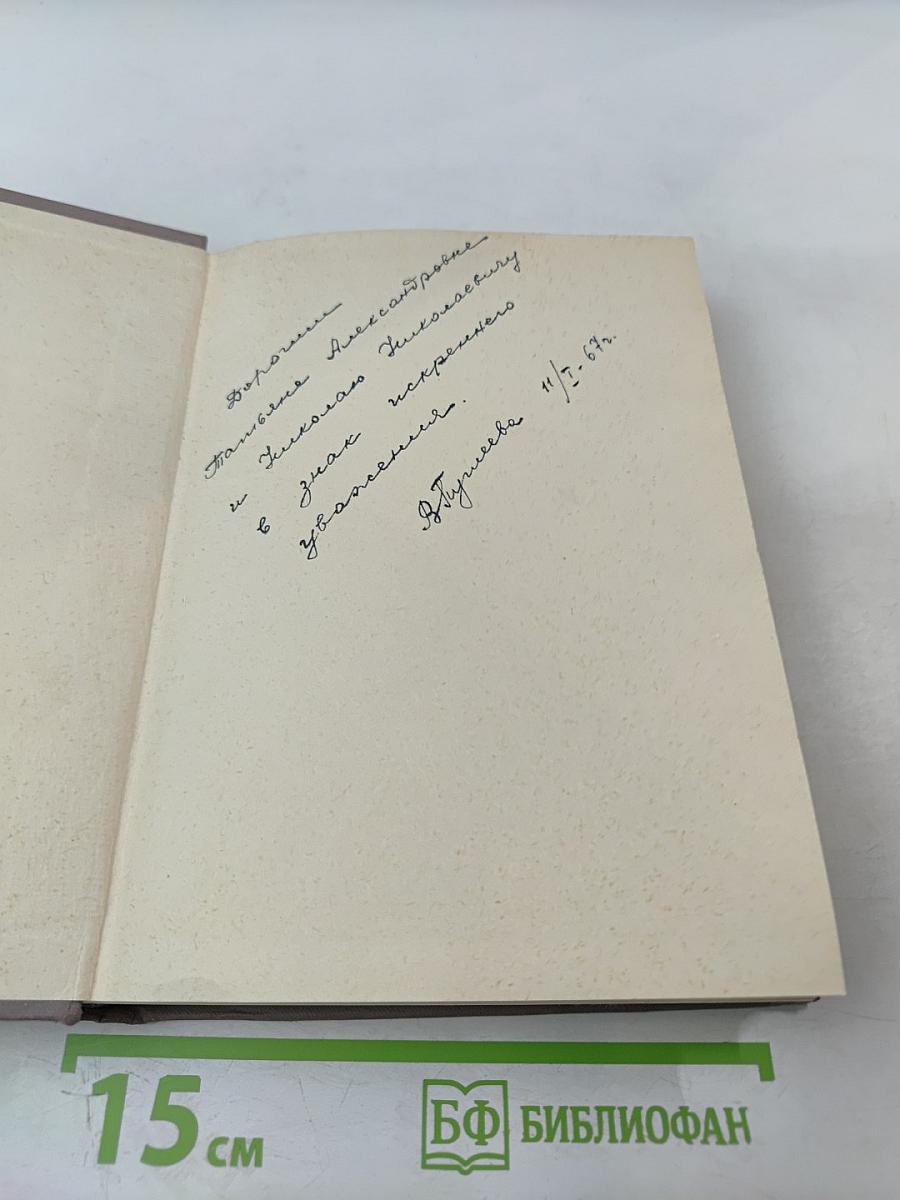 Дорогим
Татьяне Александровне
и Николаю Николаевичу
в знак искреннего
уважения.
11/I-67г.
15 см
БФ БИБЛИОФАН